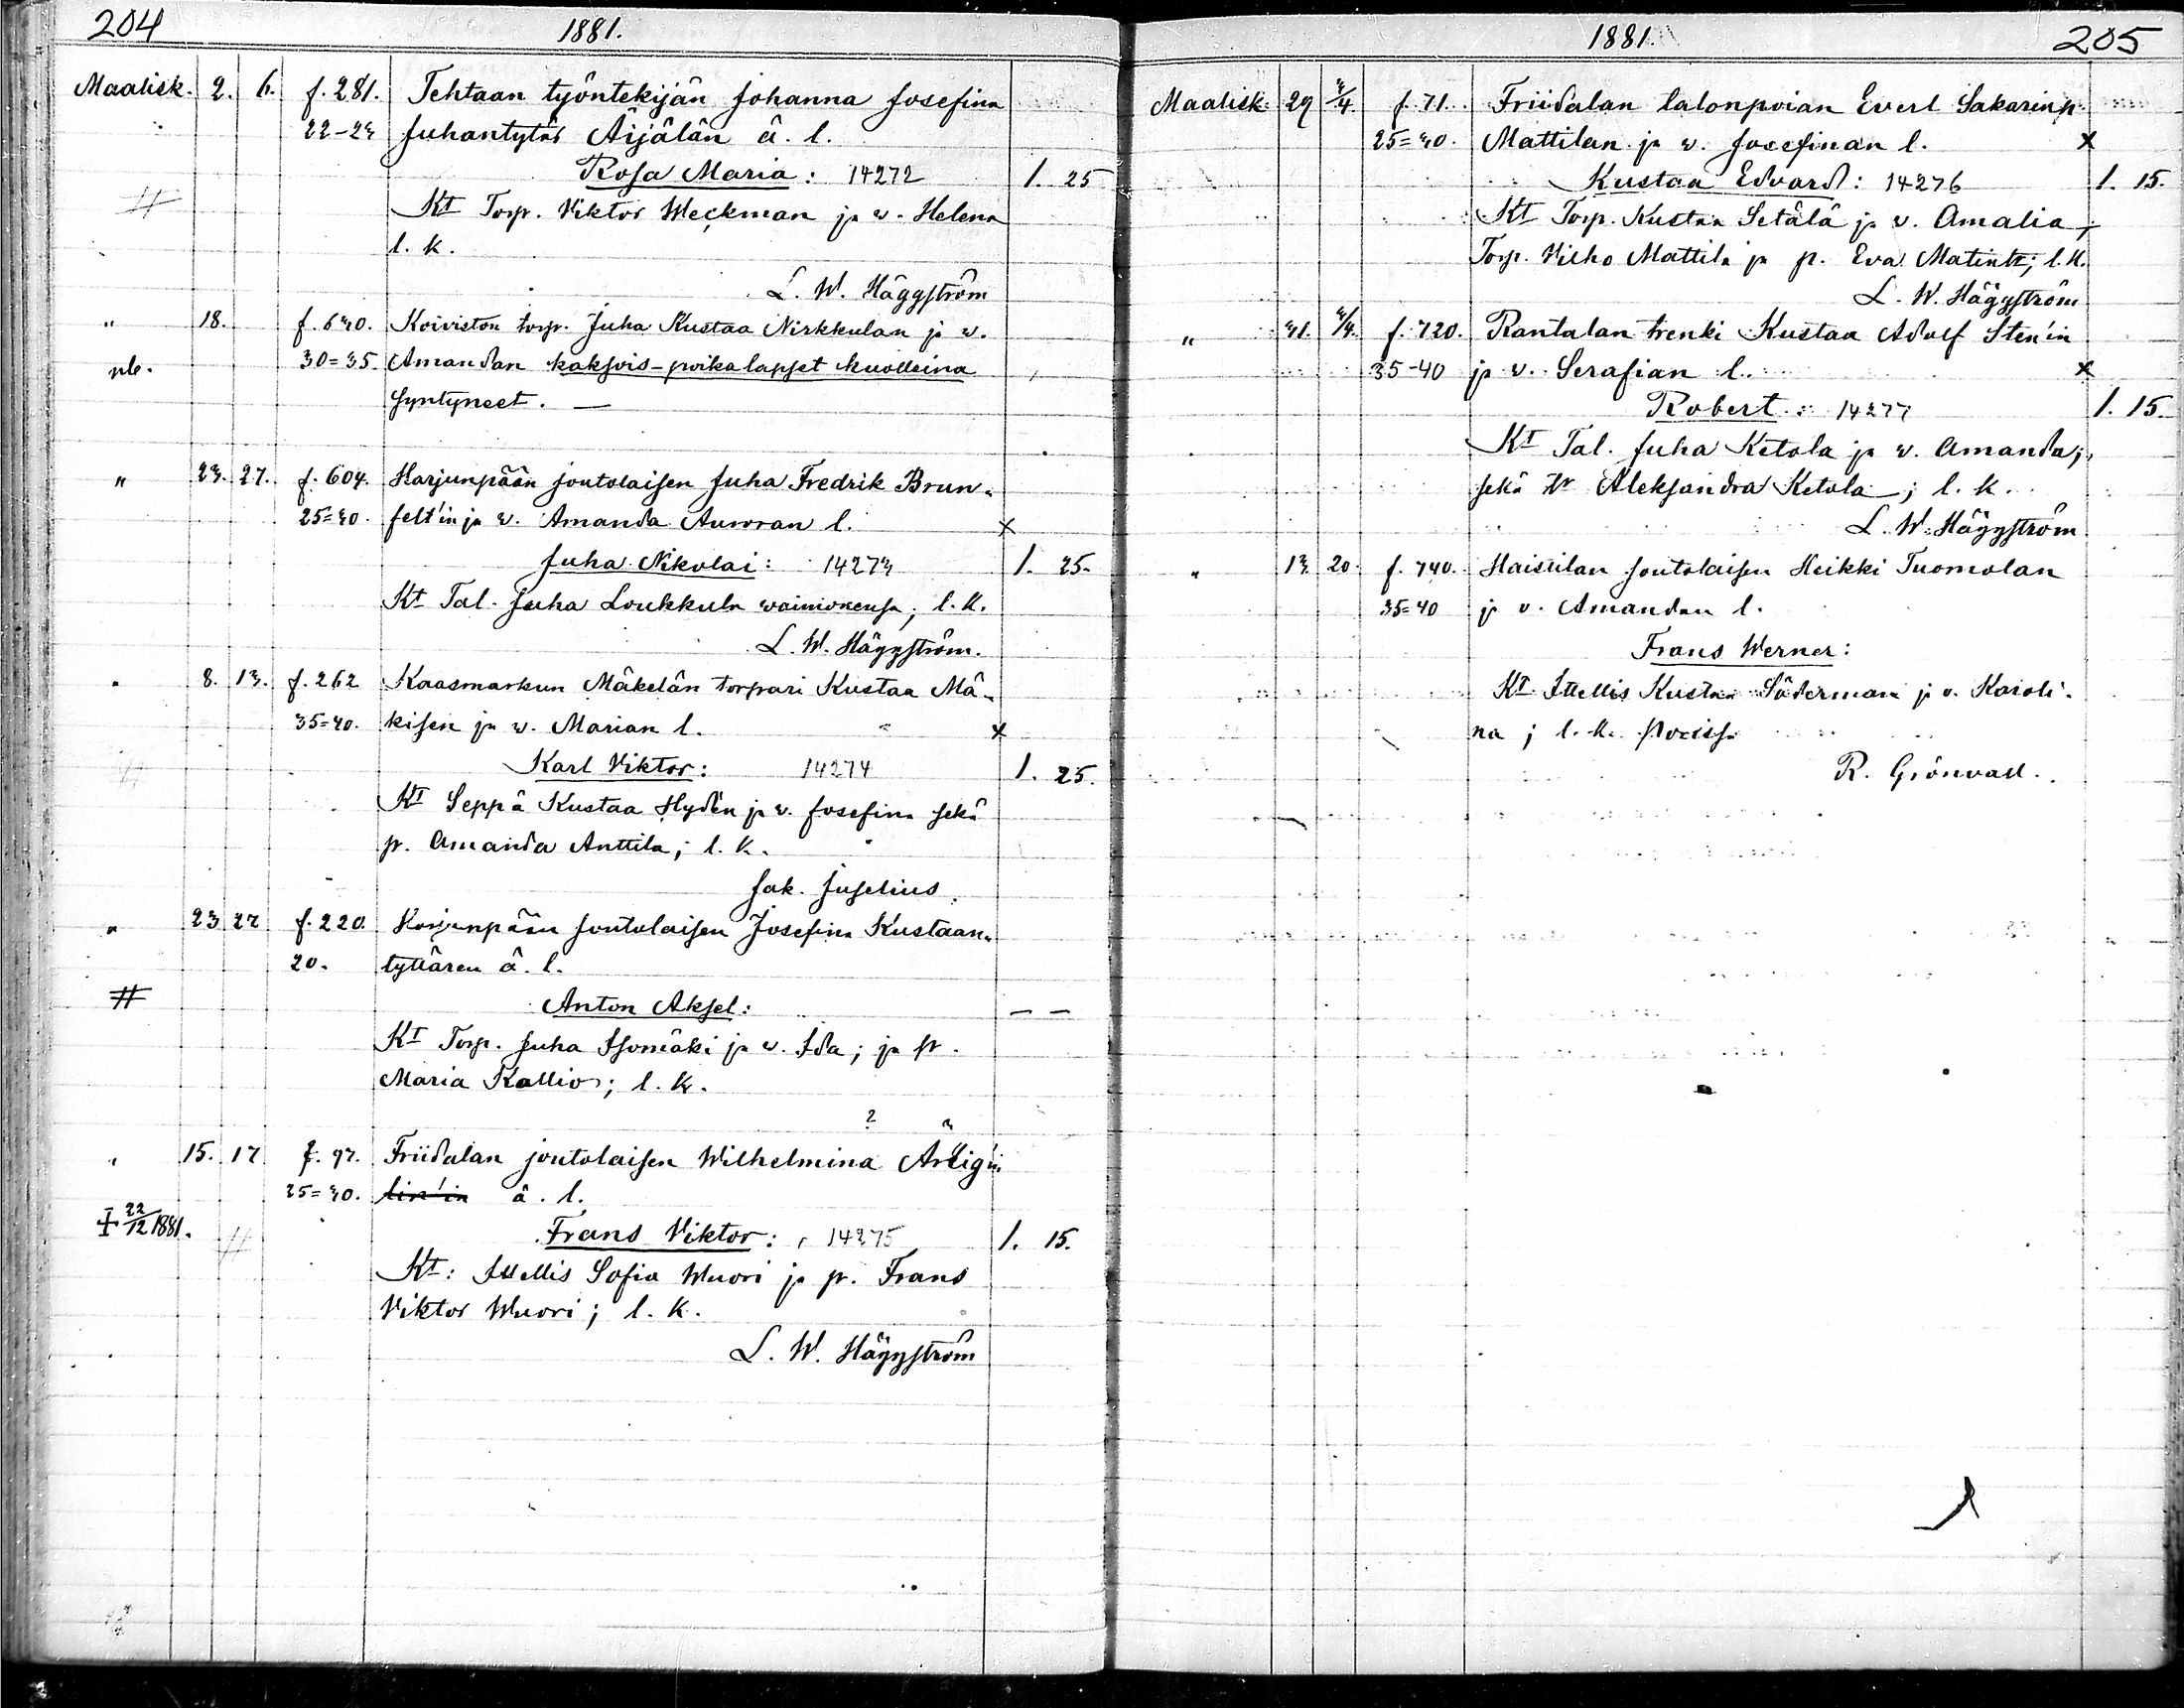 204
1881.
Maalisk. 2. 6. f. 281. Tehtaan työntekijän Johanna Josefina
22-23 Juhantytär Äijälän ä. l.
Rosa Maria: 14272 1. 25
# Kt Torp. Viktor Weckman ja w. Helena
l. k.
L. W. Häggström
" 18. f. 630. Koiviston torp. Juha Kustaa Nirkkulan ja w.
30=35. Amandan kaksois-poikalapset kuolleina
syntyneet. —
" 23. 27. f. 604. Harjunpään joutolaisen Juha Fredrik Brun-
25=30. felt'in ja w. Amanda Auroran l. x
Juha Nikolai: 14273 1. 25.
Kt Tal. Juha Loukkula waimonensa; l. k.
L. W. Häggström.
" 8. 13. f. 262 Kaasmarkun Mäkelän torpari Kustaa Mä-
35=40. kisen ja w. Marian l. x
# Karl Viktor: 14274 1. 25.
Kt Seppä Kustaa Hydén ja w. Josefina sekä
p. Amanda Anttila; l. k.
Jak. Juselius.
" 23 27 f. 220. Harjunpään joutolaisen Josefina Kustaan-
20. tyttären ä. l.
# Anton Aksel: — —
Kt Torp. Juha Isomäki ja w. Ida; ja p.
Maria Kallio; l. k.
?
" 15. 17 f. 97. Friidalan joutolaisen Wilhelmina
25=30. ä. l.
‡ 22/12 1881. # Frans Viktor: 14275 1. 15.
Kt: Itellis Sofia Wuori ja p. Frans
Viktor Wuori; l. k.
L. W. Häggström
1881.
205
Maalisk. 29 3/4. f. 71. Friidalan talonpoian Evert Sakarinp.
25=30. Mattilan ja w. Josefinan l. x
Kustaa Edvard: 14276 1. 15.
Kt Torp. Kustaa Setälä ja v. Amalia;
Torp. Vilho Mattila ja p. Eva Matintr; l. k.
L. W. Häggström
" 31. 3/4. f. 720. Rantalan trenki Kustaa Adolf Sten'in
35-40 ja v. Serafian l. x
Robert: 14277 1. 15.
Kt Tal. Juha Ketola ja w. Amanda;
sekä Aleksandra Ketola; l. k.
L. W. Häggström
" 13. 20. f. 740. Haistilan joutolaisen Heikki Tuomolan
35=40 ja v. Amandan l.
Frans Werner:
Kt Itellis Kustaa Söderman ja v. Karoli-
na; l. k.
R. Grönvall.